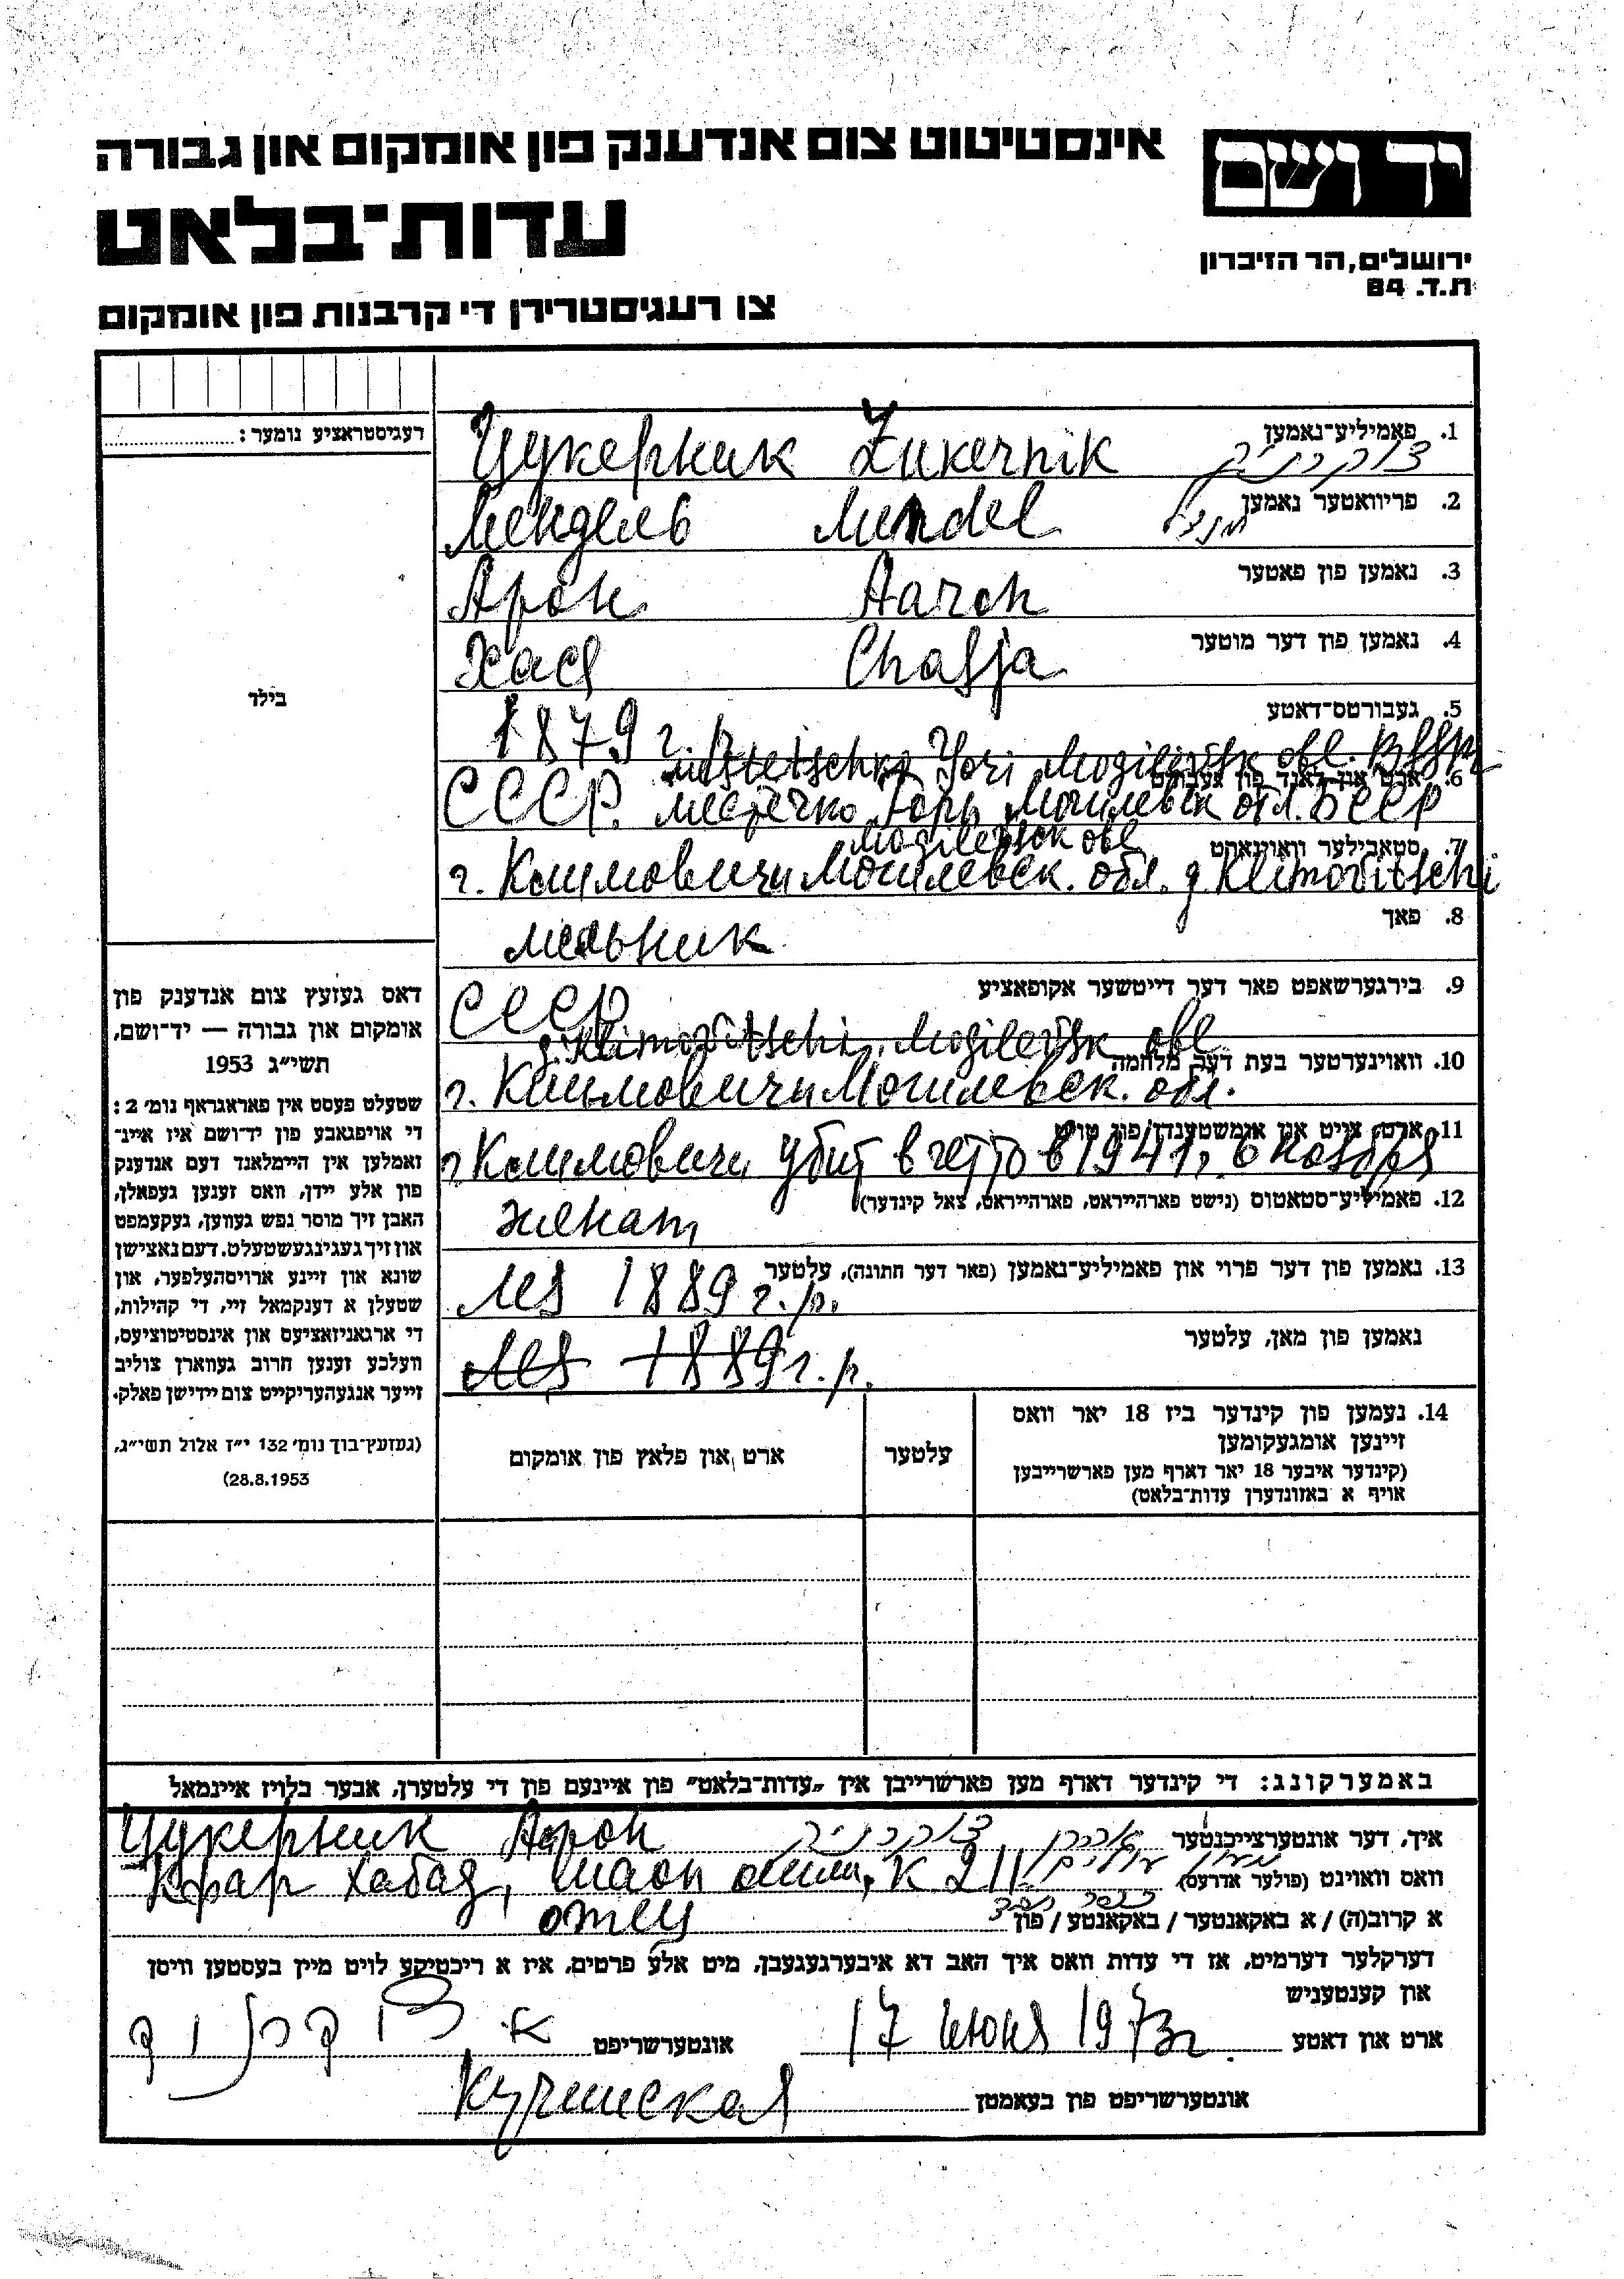 אינסטיטוט צום אנדענק פון אומקום און גבורה
יד ושם
עדות־בלאט
ירושלים, הר הזיכרון
ת.ד. 84
צו רעגיסטרירן די קרבנות פון אומקום
רעגיסטראציע נומער:
בילד
1. פאמיליע־נאמען
Цукерник Žukernik צוקרניק
2. פריוואטער נאמען
Мендель Mendel מנדל
3. נאמען פון פאטער
Арон Aaron
4. נאמען פון דער מוטער
Хася Chasja
5. געבורטס־דאטע
1879 г. р.
mestetschko Gori Mogilevsk obl. BSSR
6. ארט און לאנד פון געבורט
СССР. местечко Горы Могилевск обл. БССР
Mogilevsk obl
7. סטאבילער וואוינארט
г. Климовичи Могилевск. обл. g. Klimovitschi
8. פאך
мельник
9. בירגערשאפט פאר דער דייטשער אקופאציע
СССР
g. Klimovitschi, Mogilevsk obl.
10. וואוינערטער בעת דער מלחמה
г. Климовичи Могилевск. обл.
11. ארט, צייט און אומשטענדן פון טויט
г. Климовичи убит в гетто в 1941, 6 ноября
12. פאמיליע־סטאטוס (נישט פארהייראט, פארהייראט, צאל קינדער)
женат
13. נאמען פון דער פרוי און פאמיליע־נאמען (פאר דער חתונה), עלטער
Лея 1889 г. р.
נאמען פון מאן, עלטער
Лея 1889 г. р.
דאס געזעץ צום אנדענק פון
אומקום און גבורה — יד־ושם,
תשי״ג 1953
שטעלט פעסט אין פאראגראף נומ׳ 2:
די אויפגאבע פון יד־ושם איז איינ־
זאמלען אין היימלאנד דעם אנדענק
פון אלע יידן, וואס זענען געפאלן,
האבן זיך מוסר נפש געווען, געקעמפט
און זיך געגינגעשטעלט. דעם נאצישן
שונא און זיינע ארויסהעלפער, און
שטעלן א דענקמאל זיי, די קהילות,
די ארגאניזאציעס און אינסטיטוציעס,
וועלכע זענען חרוב געווארן צוליב
זייער אנגעהעריקייט צום יידישן פאלק.
(געזעץ־בוך נומ׳ 132 י״ז אלול תשי״ג,
28.8.1953)
14. נעמען פון קינדער ביז 18 יאר וואס
זיינען אומגעקומען
(קינדער איבער 18 יאר דארף מען פארשרייבען
אויף א באזונדערן עדות־בלאט)
עלטער
ארט און פלאץ פון אומקום
באמערקונג: די קינדער דארף מען פארשרייבן אין „עדות־בלאט” פון איינעם פון די עלטערן, אבער בלויז איינמאל
איך, דער אונטערצייכנטער אהרן צוקרניק Цукерник Арон
וואס וואוינט (פולער אדרעס) מעון עולים Кфар Хабад, маон олим, к 211
כפר חבד
א קרוב(ה) / א באקאנטער / באקאנטע / פון отец
דערקלער דערמיט, אז די עדות וואס איך האב דא איבערגעגעבן, מיט אלע פרטים, איז א ריכטיקע לויט מיין בעסטען וויסן
און קענטעניש
ארט און דאטע 17 июня 1973 г. אונטערשריפט א. צוקרניק
אונטערשריפט פון בעאמטן